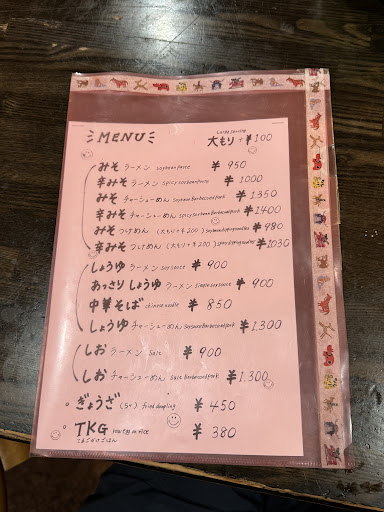 MENU
Large serving
大もり + ¥100
みそ ラーメン Soybean paste ¥ 950
辛みそ ラーメン Spicy soybean paste ¥ 1000
みそ チャーシューめん Soybean Barbecued pork ¥ 1350
辛みそ チャーシューめん Spicy Soybean Barbecued pork ¥1400
みそ つけめん (大もり+¥200) ¥980
辛みそ つけめん (大もり+¥200) ¥1030
しょうゆ ラーメン Soy sauce ¥ 900
あっさりしょうゆ ラーメン Simple soy sauce ¥ 900
中華そば chinese noodle ¥ 850
しょうゆ チャーシューめん Soysauce Barbecued pork ¥1,300
しお ラーメン Salt ¥900
しお チャーシューめん Salt Barbecued pork ¥1,300
ぎょうざ (5ヶ) fried dumpling ¥ 450
TKG raw egg on rice ¥ 380
たまごかけごはん